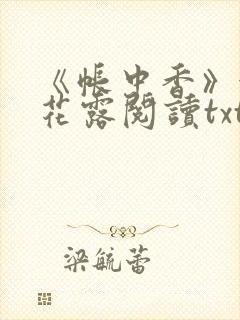 《帳中香》
花露閱讀txt
梁毓蕾